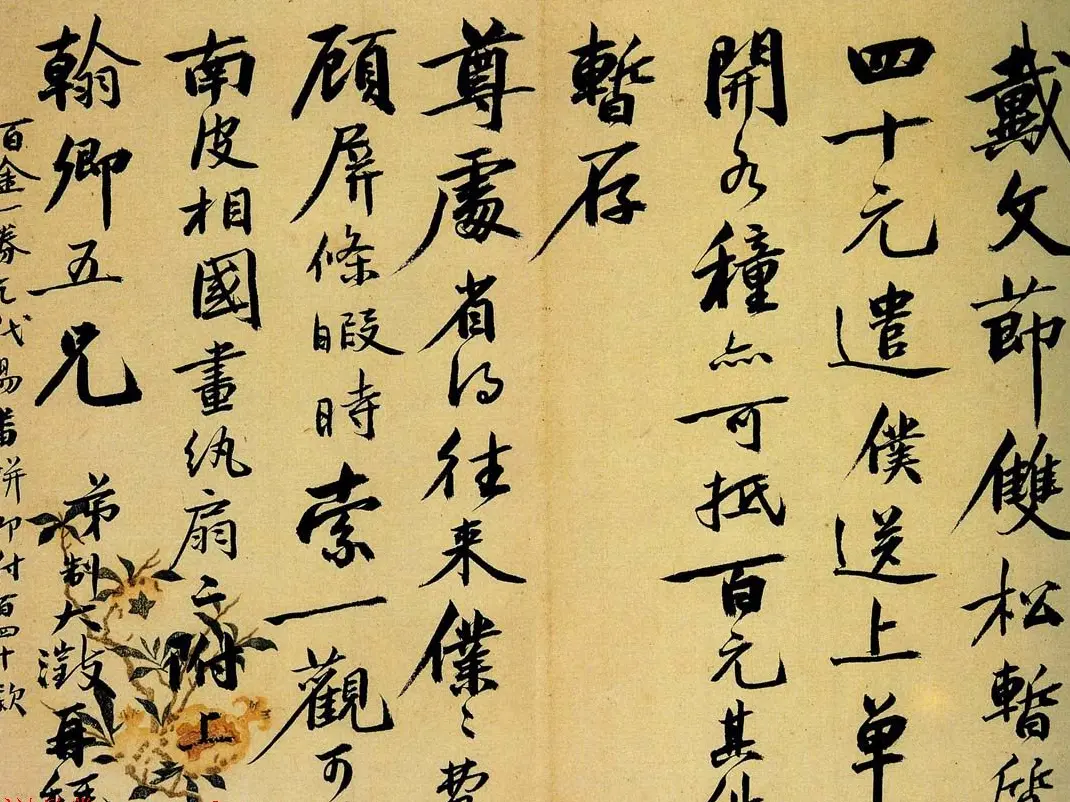 戴文節雙松暫質
四十元遣僕送上單
開各種亦可抵百元其他
暫存
尊處省得往來僕僕費
顧屏條暇時索一觀可
南皮相國畫紈扇亦附上
翰卿五兄 弟制大澂再稽
百金一券乞代易番餅即付百四十款